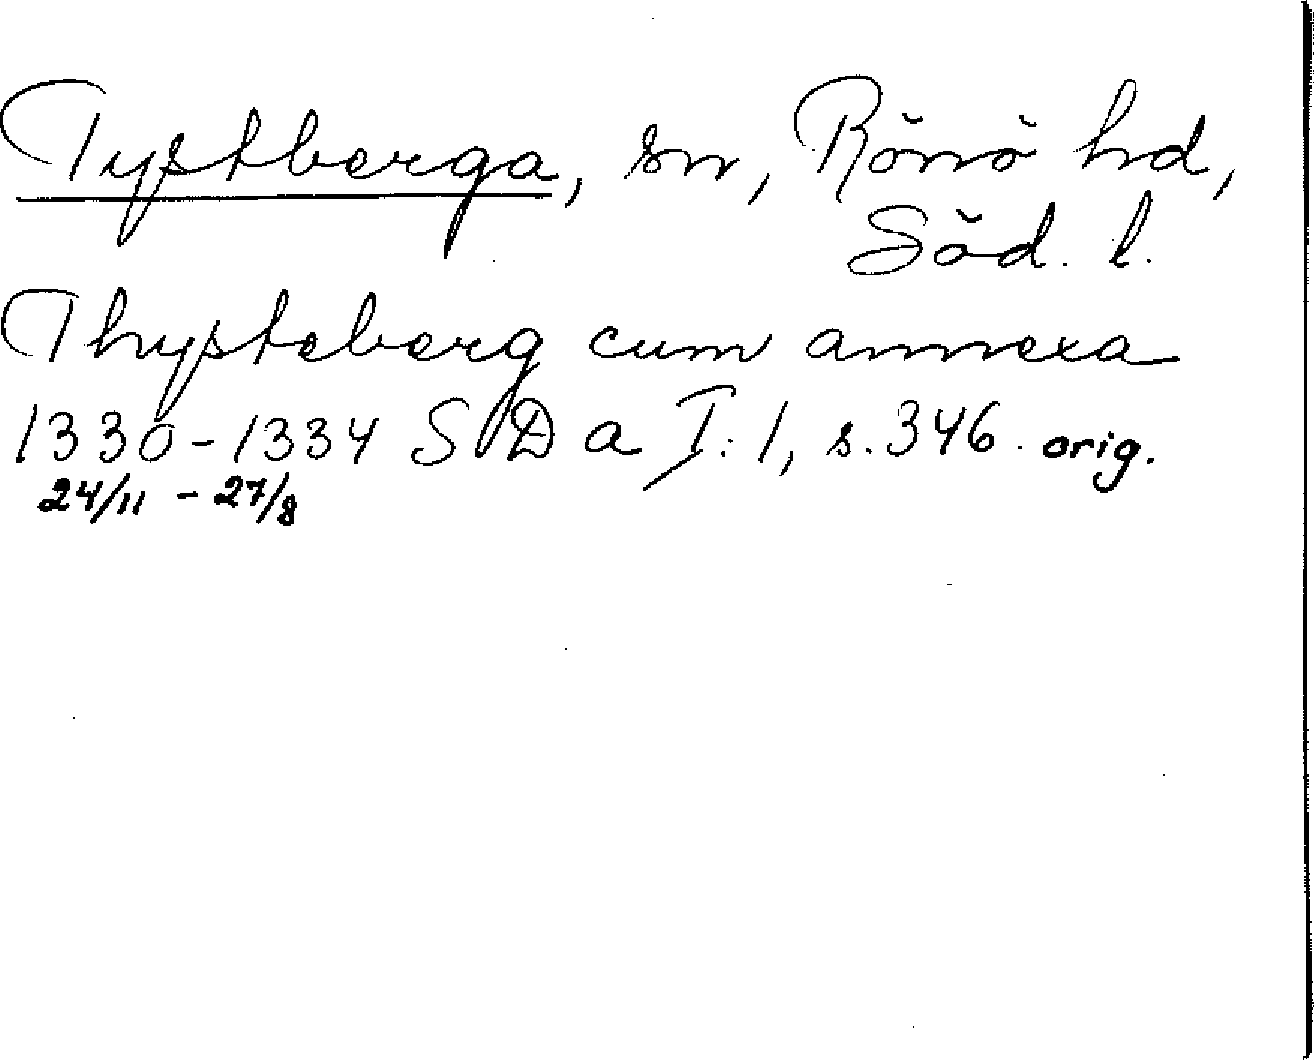 Tystberga, sn, Rönö hd,
Söd. l.
Thysteberg cum annexa
1330-1334 SD a I:1, s. 346. orig.
24/11 - 27/8